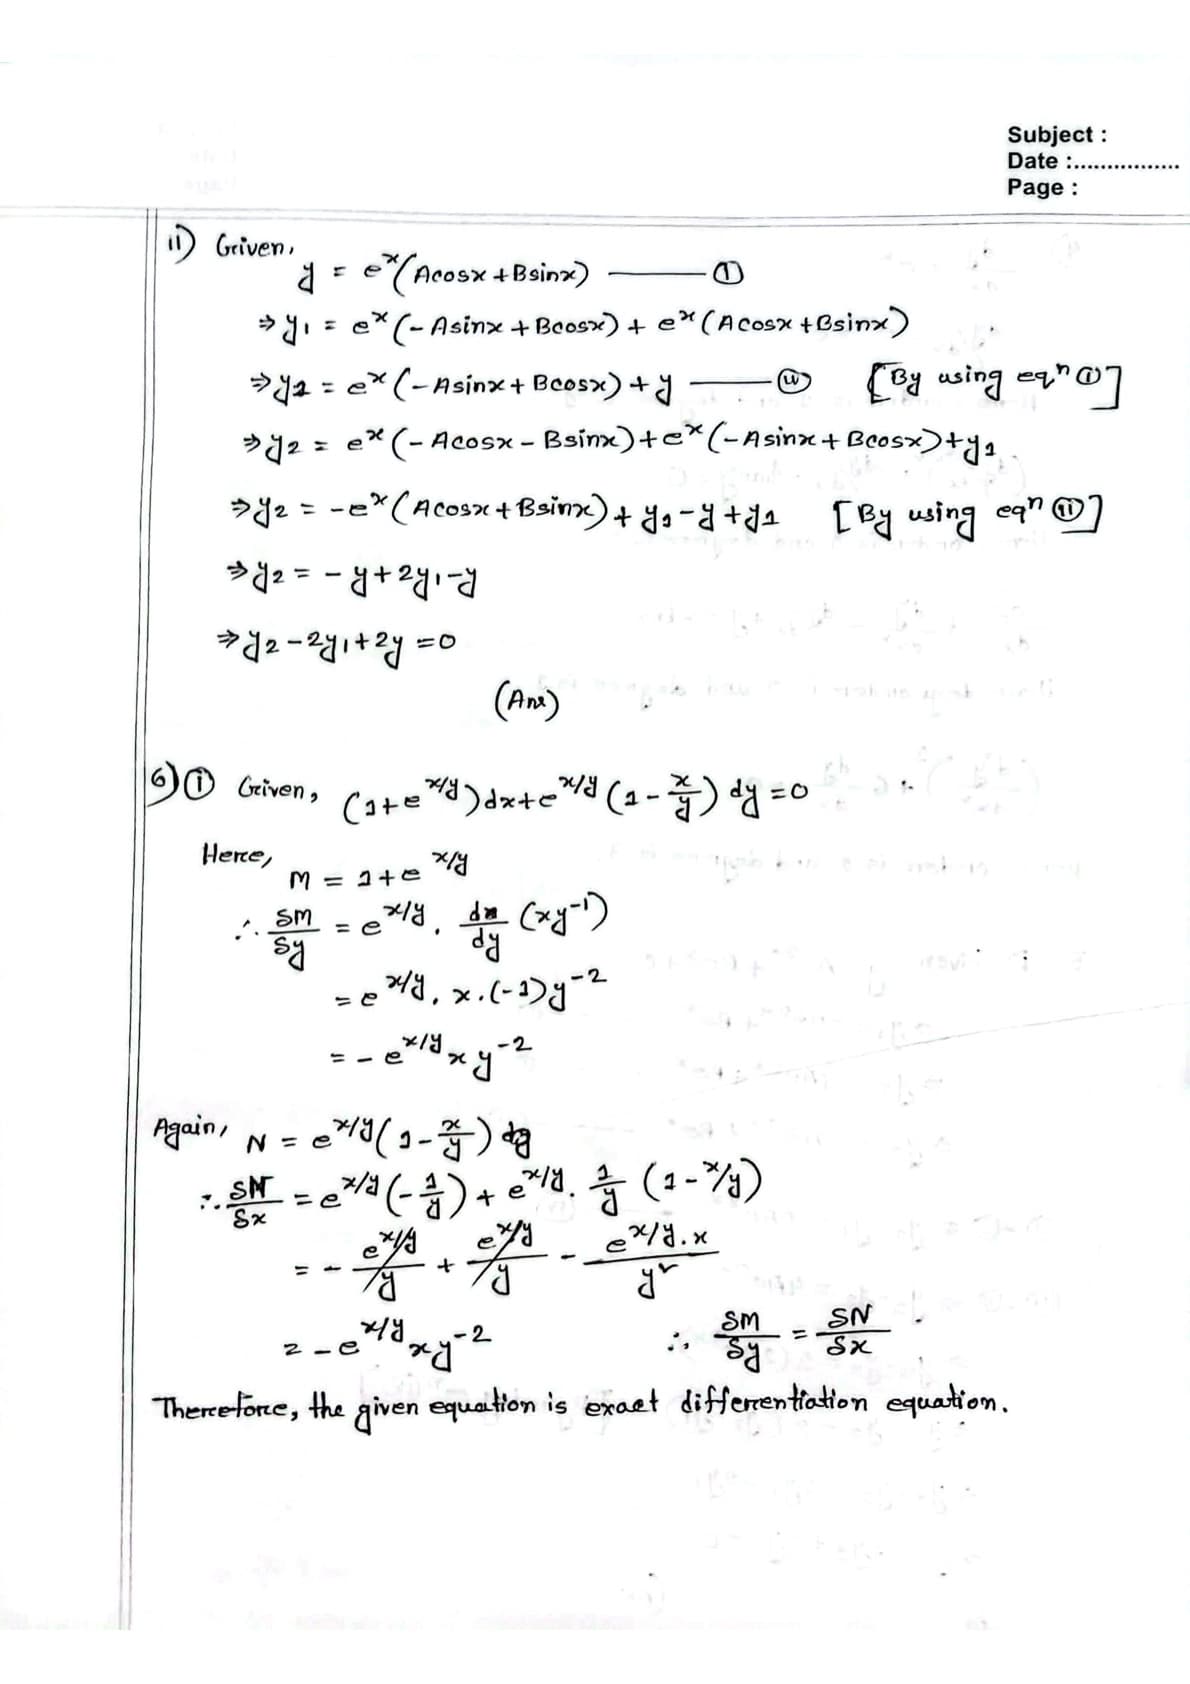 Subject :
Date :................
Page :
ii) Given,
y = e^x (Acosx + Bsinx) ——— ①
⇒ y₁ = e^x (- Asinx + Bcosx) + e^x (Acosx + Bsinx)
⇒ y₁ = e^x (- Asinx + Bcosx) + y ——— ⑪ [By using eqⁿ ①]
⇒ y₂ = e^x (- Acosx - Bsinx) + e^x (- Asinx + Bcosx) + y₁
⇒ y₂ = - e^x (Acosx + Bsinx) + y₁ - y + y₁ [By using eqⁿ ⑪]
⇒ y₂ = - y + 2y₁ - y
⇒ y₂ - 2y₁ + 2y = 0
(Ans)
6) ⓘ Given, (1 + e^{x/y}) dx + e^{x/y} (1 - x/y) dy = 0
Here,
M = 1 + e^{x/y}
∴ δM/δy = e^{x/y} . d/dy (xy^{-1})
= e^{x/y} . x . (-1) y^{-2}
= - e^{x/y} x y^{-2}
Again, N = e^{x/y} (1 - x/y)
∴ δN/δx = e^{x/y} (- 1/y) + e^{x/y} . 1/y (1 - x/y)
= - e^{x/y}/y + e^{x/y}/y - e^{x/y} . x / y²
= - e^{x/y} x y^{-2} ∴ δM/δy = δN/δx
Therefore, the given equation is exact differentiation equation.